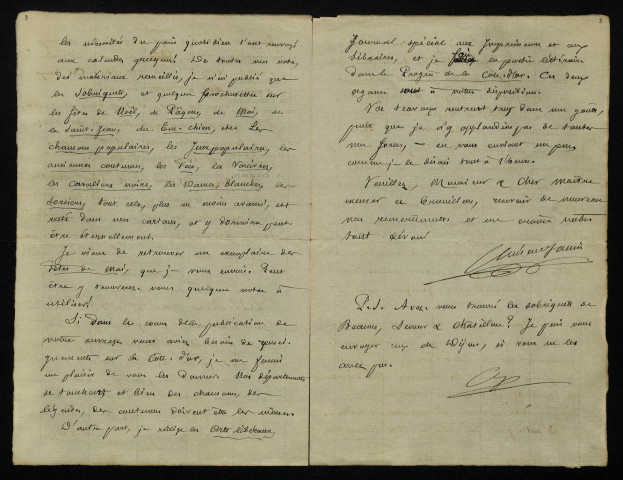 les nécessités du pain quotidien l'ont renvoyé
aux calendes grecques. De toutes mes notes,
des matériaux recueillis, je n'ai publié que
les Sobriquets, et quelques brochurettes sur
les fêtes de Noël, de Pâques, de Mai, de
la Saint-Jean, du etc. Les
chansons populaires, les Jeux populaires, les
anciennes coutumes, les Fées, les Vouivres,
les Cavaliers noirs, les Dames blanches, les
Sorciers, tout cela, plus ou moins avancé, est
resté dans mes cartons, et y dormira peut-
être éternellement.
Je viens de retrouver un exemplaire des
Fêtes de Mai, que je vous envoie. Peut
être y trouverez-vous quelque note à
utiliser?
Si dans le cours de la publication de
votre ouvrage vous aviez besoin de rensei-
gnements sur la Côte-d'or, je me ferai
un plaisir de vous les donner. Nos départements
se touchent et bien des chansons, des
légendes, des coutumes doivent être les mêmes.
D'autre part, je rédige les Arts libéraux,
Journal spécial aux Imprimeurs et aux
libraires, et je fais la partie littéraire
dans le Progrès de la Côte-d'Or. Ces deux
organes sont à votre disposition.
Vos travaux rentrent trop dans mes goûts,
pour que je n'y applaudisse pas de toutes
mes forces, — en vous enviant un peu,
comme je le disais tout à l'heure.
Veuillez, Monsieur & Cher Maître
excuser ce brouillon, recevoir de nouveau
mes remerciements et me croire votre
tout dévoué
P.S. Avez-vous trouvé les sobriquets de
Beaune, Semur & Châtillon? Je puis vous
envoyer ceux de Dijon, si vous ne les
avez pas.